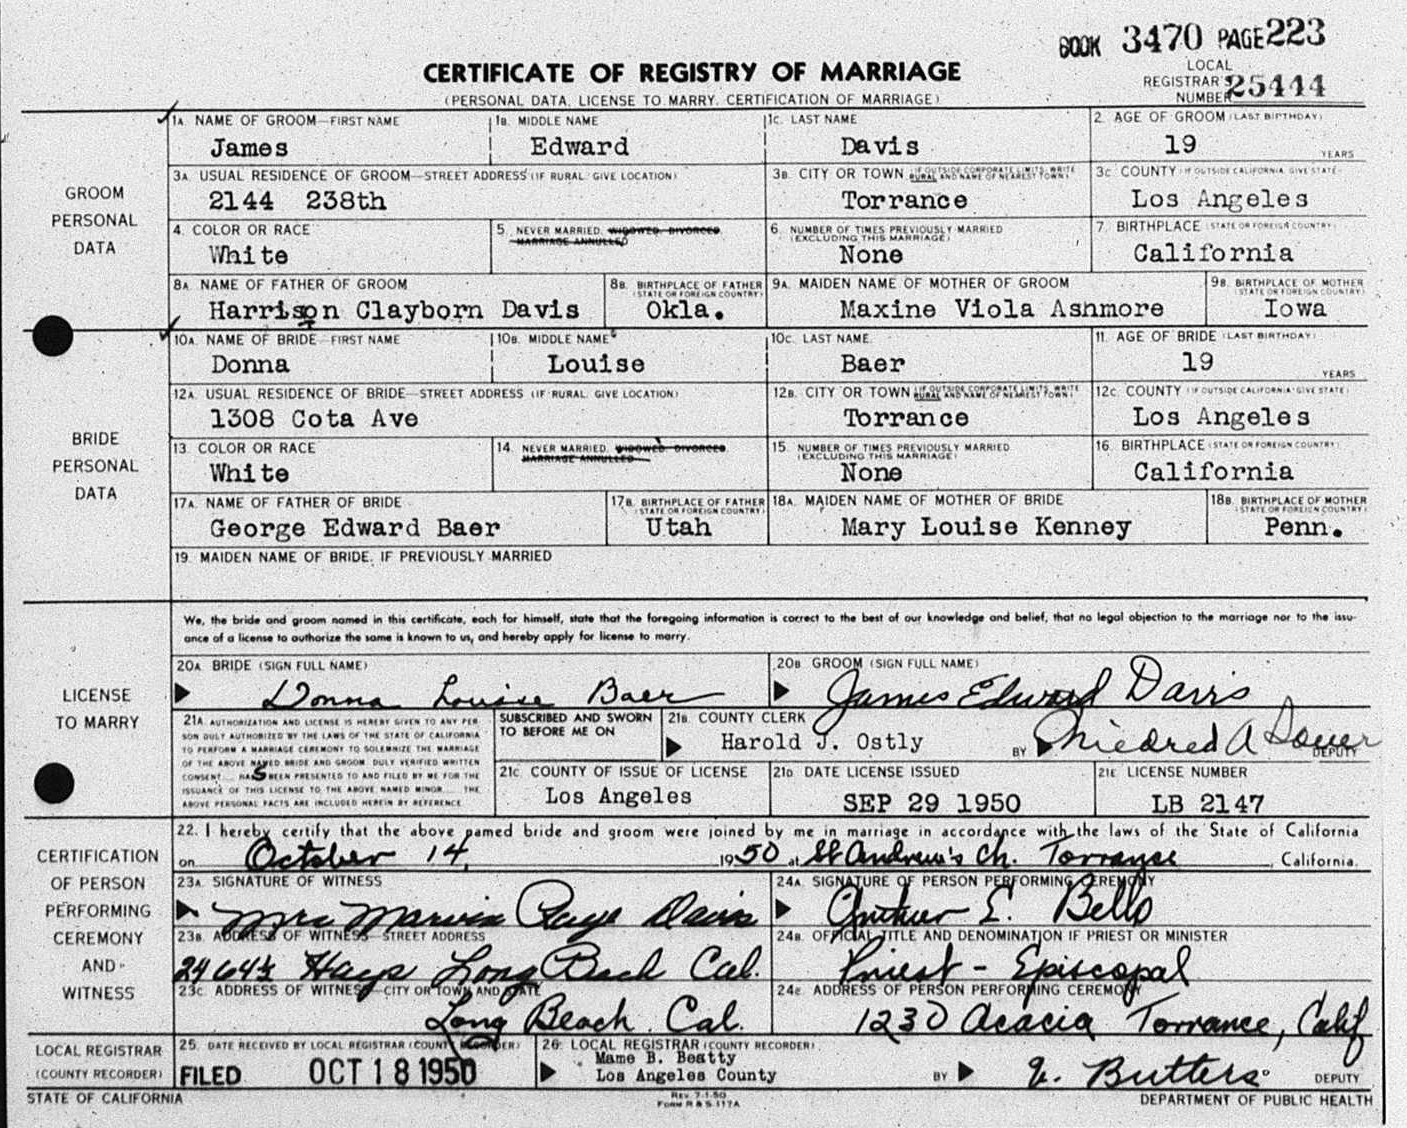 BOOK 3470 PAGE 223
CERTIFICATE OF REGISTRY OF MARRIAGE
LOCAL REGISTRAR'S NUMBER 25444
(PERSONAL DATA, LICENSE TO MARRY, CERTIFICATION OF MARRIAGE)
GROOM PERSONAL DATA
1A. NAME OF GROOM—FIRST NAME 1B. MIDDLE NAME 1C. LAST NAME 2. AGE OF GROOM (LAST BIRTHDAY)
James Edward Davis 19 YEARS
3A. USUAL RESIDENCE OF GROOM—STREET ADDRESS (IF RURAL, GIVE LOCATION) 3B. CITY OR TOWN (IF OUTSIDE CORPORATE LIMITS, WRITE RURAL AND NAME OF NEAREST TOWN) 3C. COUNTY (IF OUTSIDE CALIFORNIA, GIVE STATE)
2144 238th Torrance Los Angeles
4. COLOR OR RACE 5. NEVER MARRIED, WIDOWED, DIVORCED, MARRIAGE ANNULLED 6. NUMBER OF TIMES PREVIOUSLY MARRIED (EXCLUDING THIS MARRIAGE) 7. BIRTHPLACE (STATE OR FOREIGN COUNTRY)
White None California
8A. NAME OF FATHER OF GROOM 8B. BIRTHPLACE OF FATHER (STATE OR FOREIGN COUNTRY) 9A. MAIDEN NAME OF MOTHER OF GROOM 9B. BIRTHPLACE OF MOTHER (STATE OR FOREIGN COUNTRY)
Harrison Clayborn Davis Okla. Maxine Viola Ashmore Iowa
BRIDE PERSONAL DATA
10A. NAME OF BRIDE—FIRST NAME 10B. MIDDLE NAME 10C. LAST NAME 11. AGE OF BRIDE (LAST BIRTHDAY)
Donna Louise Baer 19 YEARS
12A. USUAL RESIDENCE OF BRIDE—STREET ADDRESS (IF RURAL, GIVE LOCATION) 12B. CITY OR TOWN (IF OUTSIDE CORPORATE LIMITS, WRITE RURAL AND NAME OF NEAREST TOWN) 12C. COUNTY (IF OUTSIDE CALIFORNIA, GIVE STATE)
1308 Cota Ave Torrance Los Angeles
13. COLOR OR RACE 14. NEVER MARRIED, WIDOWED, DIVORCED, MARRIAGE ANNULLED 15. NUMBER OF TIMES PREVIOUSLY MARRIED (EXCLUDING THIS MARRIAGE) 16. BIRTHPLACE (STATE OR FOREIGN COUNTRY)
White None California
17A. NAME OF FATHER OF BRIDE 17B. BIRTHPLACE OF FATHER (STATE OR FOREIGN COUNTRY) 18A. MAIDEN NAME OF MOTHER OF BRIDE 18B. BIRTHPLACE OF MOTHER (STATE OR FOREIGN COUNTRY)
George Edward Baer Utah Mary Louise Kenney Penn.
19. MAIDEN NAME OF BRIDE, IF PREVIOUSLY MARRIED
LICENSE TO MARRY
We, the bride and groom named in this certificate, each for himself, state that the foregoing information is correct to the best of our knowledge and belief, that no legal objection to the marriage nor to the issu-
ance of a license to authorize the same is known to us, and hereby apply for license to marry.
20A. BRIDE (SIGN FULL NAME) 20B. GROOM (SIGN FULL NAME)
Donna Louise Baer James Edward Davis
21A. AUTHORIZATION AND LICENSE IS HEREBY GIVEN TO ANY PER
SON DULY AUTHORIZED BY THE LAWS OF THE STATE OF CALIFORNIA
TO PERFORM A MARRIAGE CEREMONY TO SOLEMNIZE THE MARRIAGE
OF THE ABOVE NAMED BRIDE AND GROOM. DULY VERIFIED WRITTEN
CONSENT HAS BEEN PRESENTED TO AND FILED BY ME FOR THE
ISSUANCE OF THIS LICENSE TO THE ABOVE NAMED MINOR. THE
ABOVE PERSONAL FACTS ARE INCLUDED HEREIN BY REFERENCE
SUBSCRIBED AND SWORN TO BEFORE ME ON
21B. COUNTY CLERK
Harold J. Ostly BY Mildred A DEPUTY
21C. COUNTY OF ISSUE OF LICENSE 21D. DATE LICENSE ISSUED 21E. LICENSE NUMBER
Los Angeles SEP 29 1950 LB 2147
CERTIFICATION OF PERSON PERFORMING CEREMONY AND WITNESS
22. I hereby certify that the above named bride and groom were joined by me in marriage in accordance with the laws of the State of California
on October 14, 1950 at St Andrew's Ch. Torrance, California.
23A. SIGNATURE OF WITNESS 24A. SIGNATURE OF PERSON PERFORMING CEREMONY
Mrs Marvin Raye Davis
23B. ADDRESS OF WITNESS—STREET ADDRESS 24B. OFFICIAL TITLE AND DENOMINATION IF PRIEST OR MINISTER
2464½ Hays Long Beach Cal. Priest - Episcopal
23C. ADDRESS OF WITNESS—CITY OR TOWN AND STATE 24C. ADDRESS OF PERSON PERFORMING CEREMONY
Long Beach. Cal. 1230 Acacia Torrance, Calif
LOCAL REGISTRAR (COUNTY RECORDER)
25. DATE RECEIVED BY LOCAL REGISTRAR (COUNTY RECORDER) 26. LOCAL REGISTRAR (COUNTY RECORDER)
FILED OCT 18 1950 Mame B. Beatty
Los Angeles County BY Butters DEPUTY
STATE OF CALIFORNIA REV. 7-1-50 FORM R & S-117A DEPARTMENT OF PUBLIC HEALTH